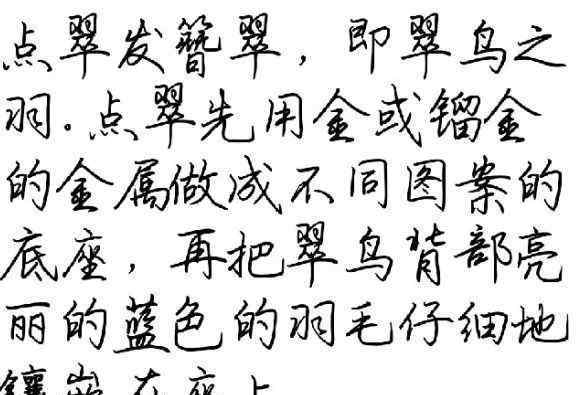 点翠发簪翠，即翠鸟之
羽.点翠先用金或镏金
的金属做成不同图案的
底座，再把翠鸟背部亮
丽的蓝色的羽毛仔细地
镶嵌在座上